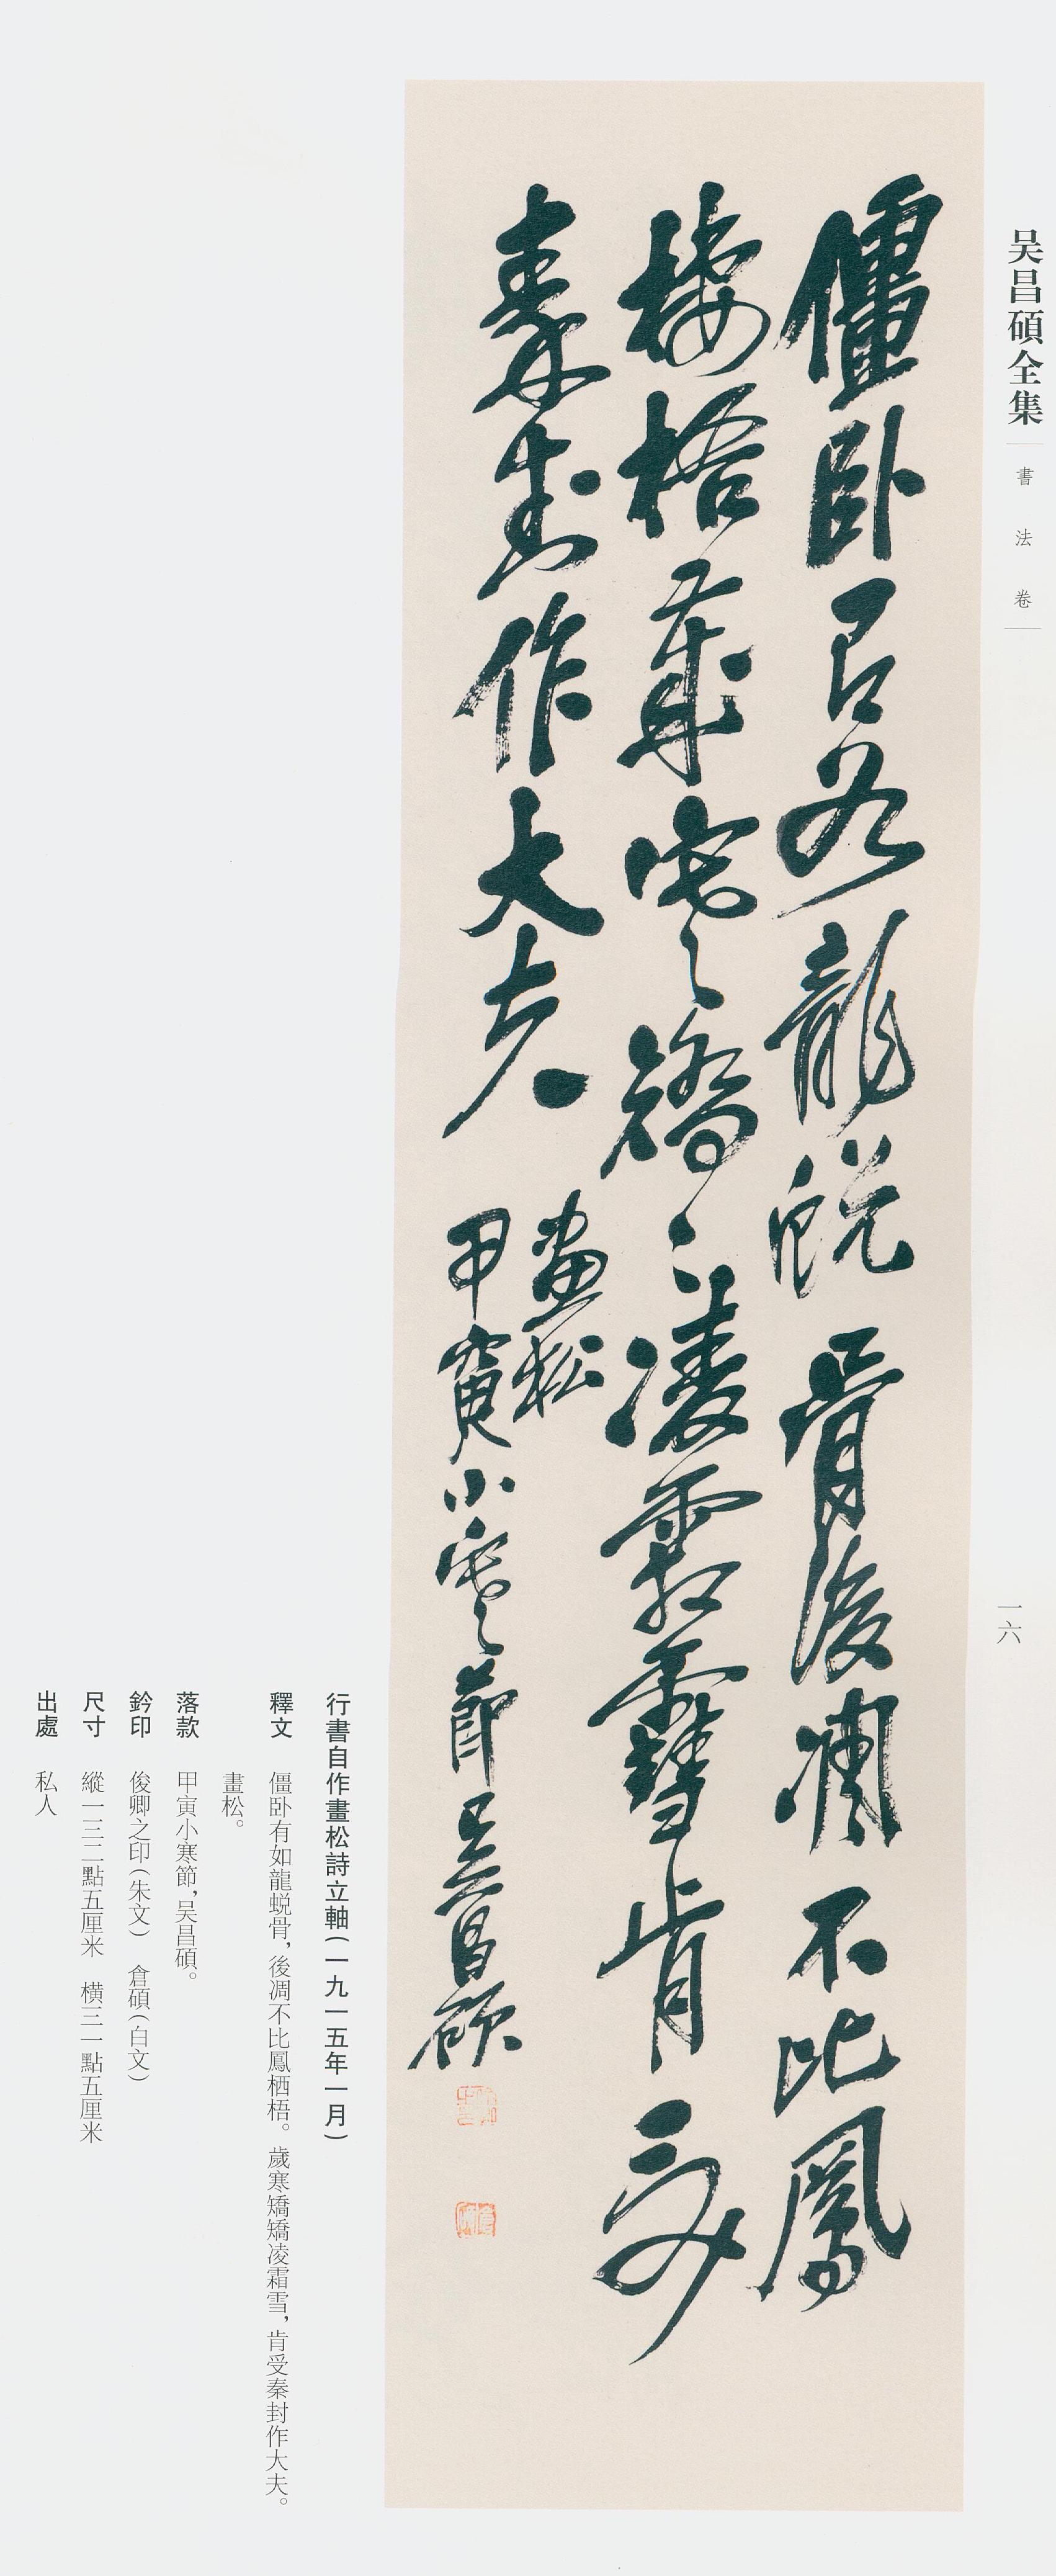 吴昌碩全集
書法卷
一六
僵卧君如龍蜕骨後凋不比鳳
棲梧歲寒矯〻凌霜雪肯受
秦封作大夫
畫松
甲寅小寒節吴昌碩
行書自作畫松詩立軸(一九一五年一月)
釋文　僵卧有如龍蜕骨,後凋不比鳳栖梧。歲寒矯矯凌霜雪,肯受秦封作大夫。
畫松。
落款　甲寅小寒節,吴昌碩。
鈐印　俊卿之印(朱文)　倉碩(白文)
尺寸　縱一三二點五厘米　橫三一點五厘米
出處　私人